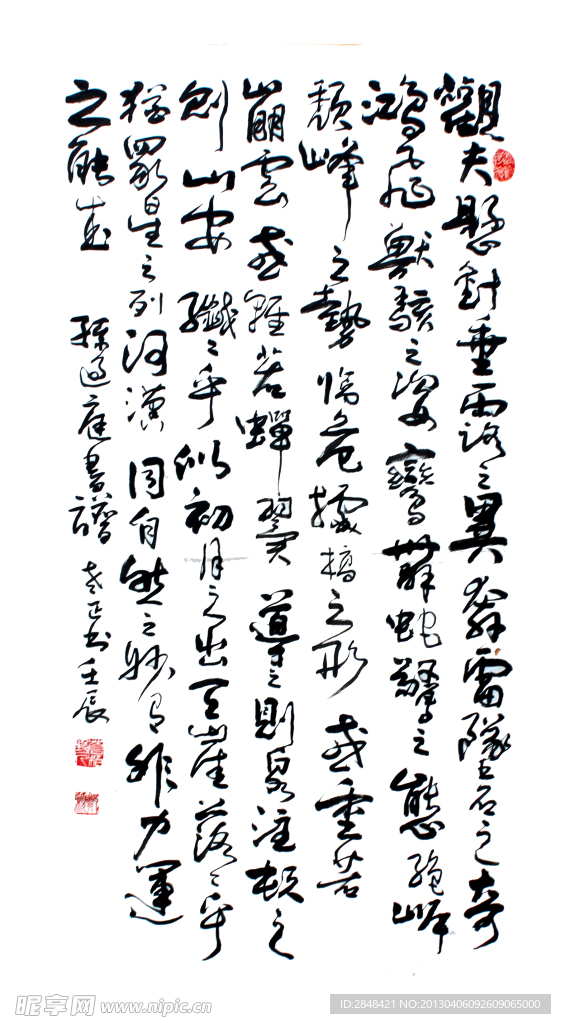 觀夫懸針垂露之異奔雷墜石之奇
鴻飛獸駭之姿鸞舞蛇驚之態絕岸
頹峰之勢臨危據槁之形或重若
崩雲或輕若蟬翼導之則泉注頓之
則山安纖〻乎似初月之出天崖落〻乎
猶眾星之列河漢同自然之妙有非力運
之能成 孫過庭書譜 正书壬辰
昵享网 www.nipic.cn
ID:2848421 NO:20130406092609065000